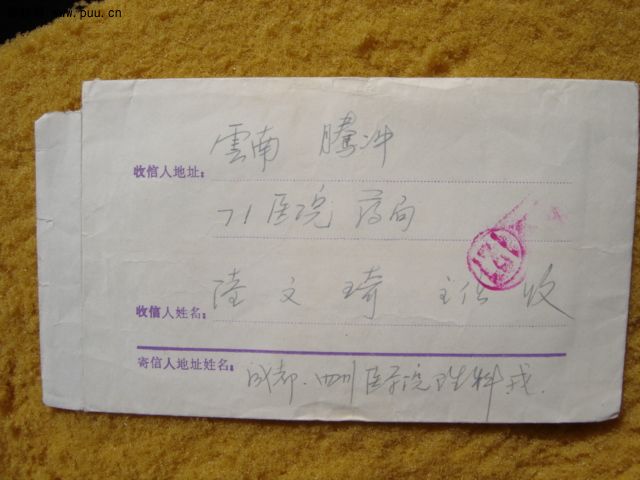 www.puu.cn
收信人地址：雲南 腾冲
71医院 药局
收信人姓名：陆文琦 主任 收
寄信人地址姓名：成都．四川医学院